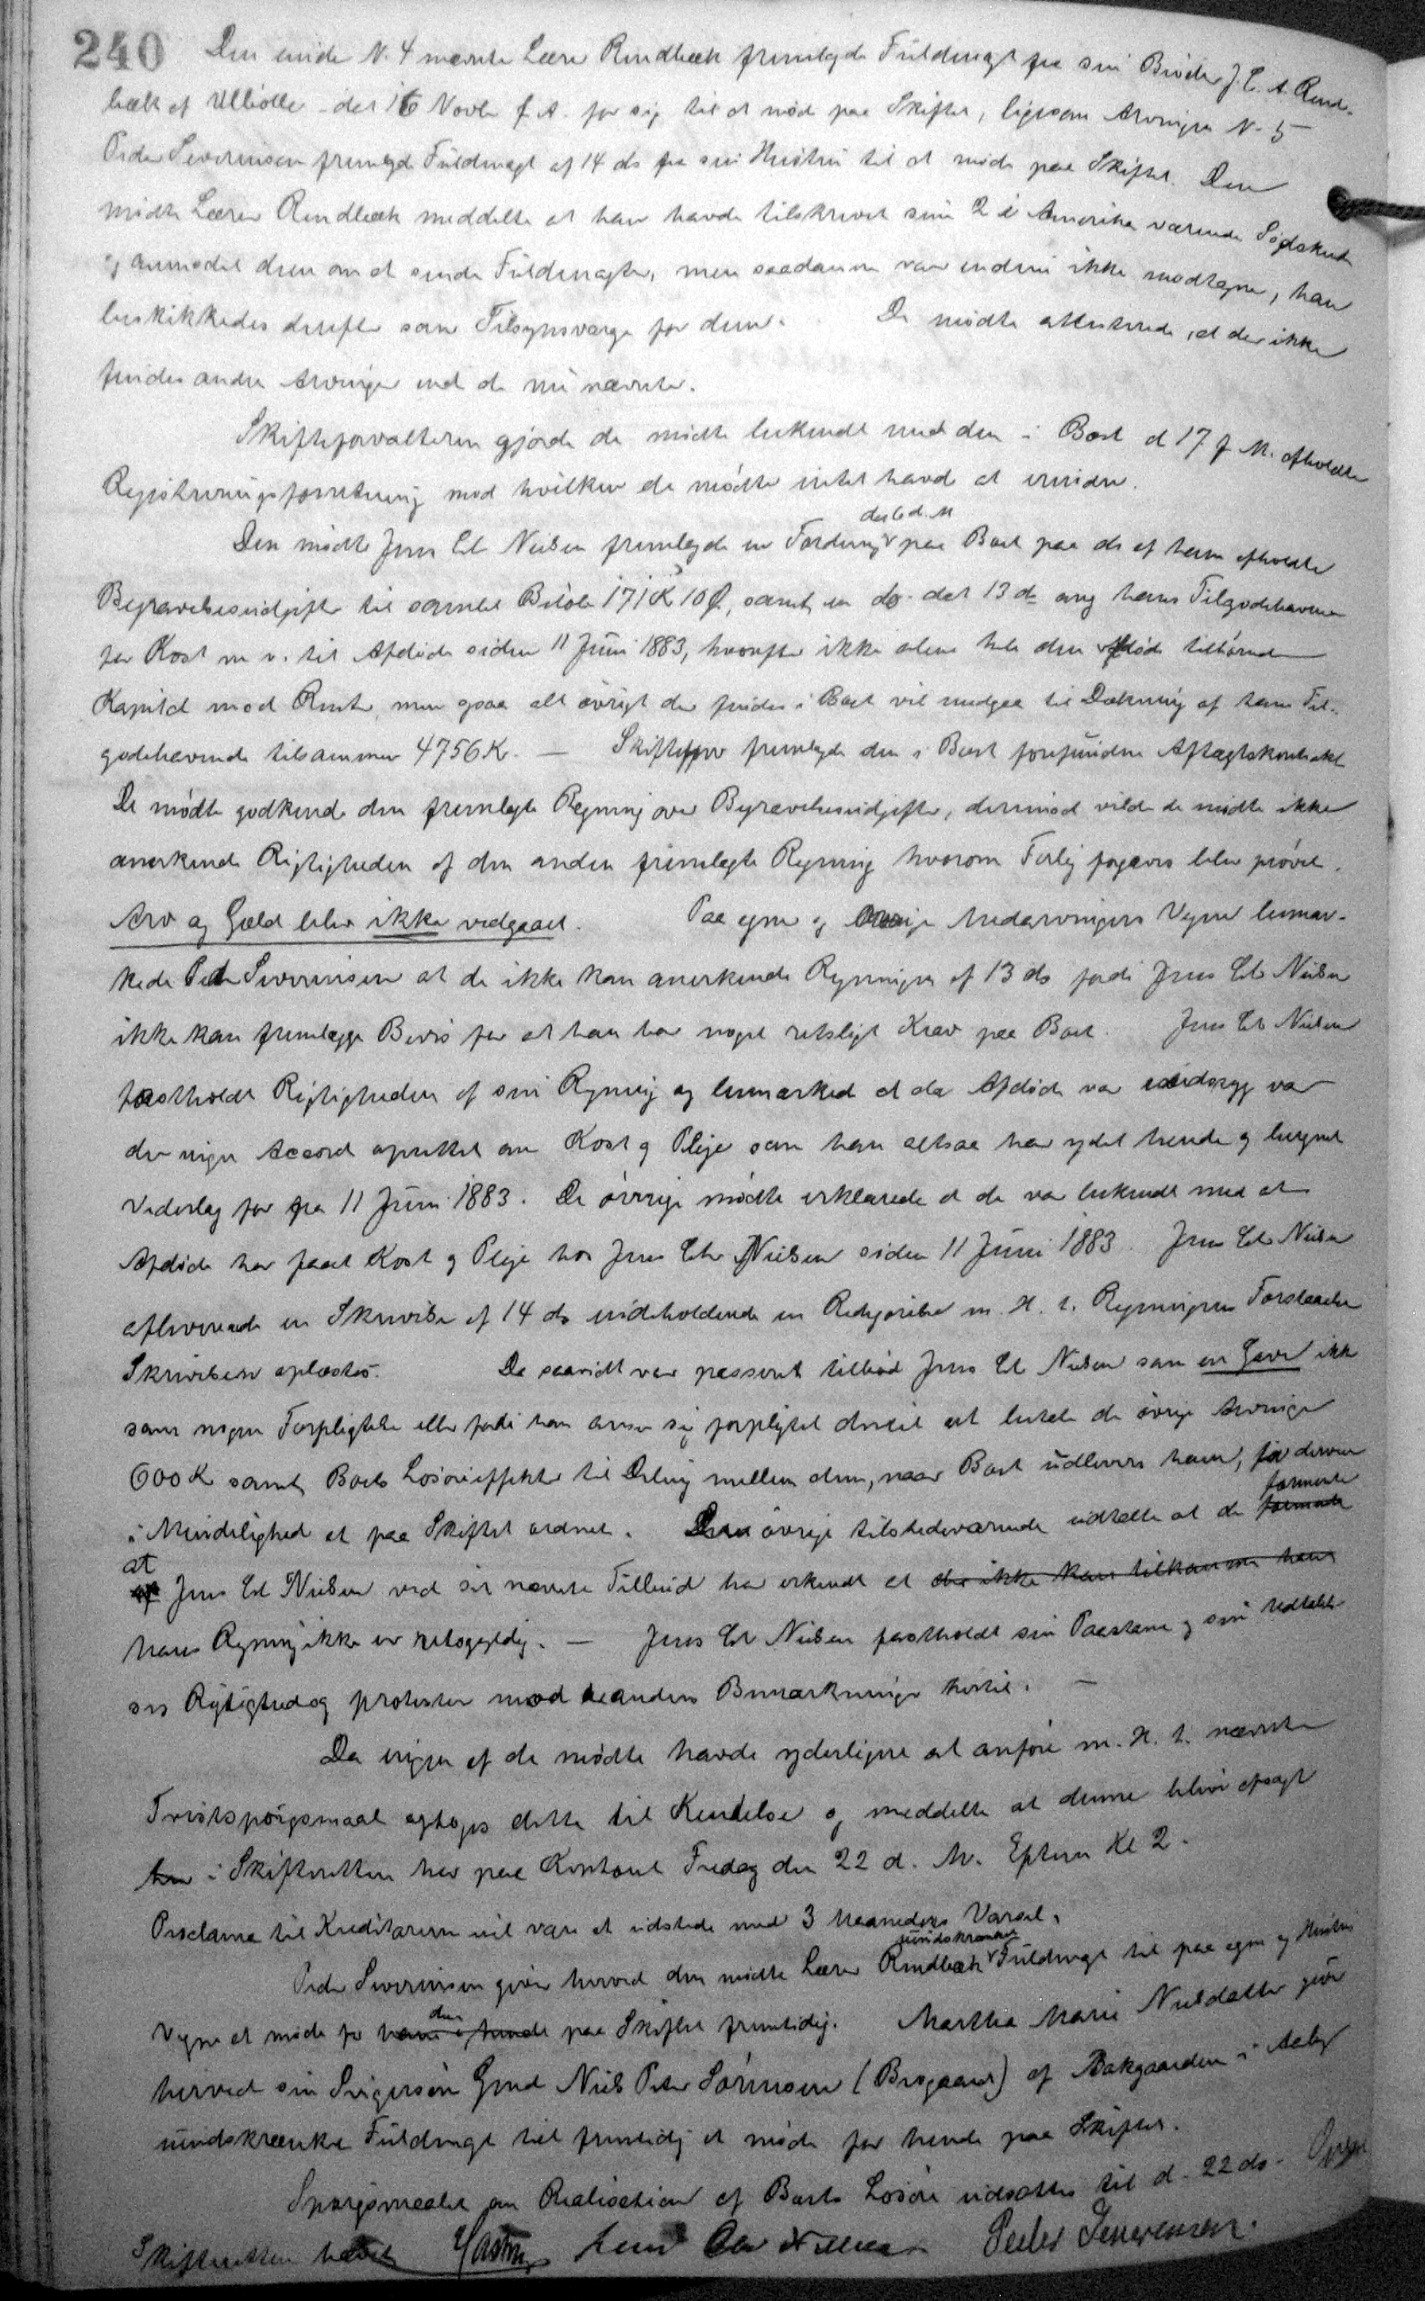 240
Den under N. 4 nævnte Lærer Rendbæk fremlagde Fuldmagt fra sin Broder J. C. A. Rend-
bæk af Ulbølle det 16 Novbr f. A. for sig til at møde paa Skiftet, ligesom Arvingen N. 5
Peder Severinsen fremlagde Fuldmagt af 14 ds fra sin Hustru til at møde paa Skiftet. Den
mødte Lærer Rendbæk meddelte at han havde tilskrevet sine 2 i Amerika værende Sødskende
og anmodet dem om at sende Fuldmagter, men saadanne var endnu ikke modtagne, han
beskikkedes derefter som Tilsynsværge for dem. De mødte attesterede, at der ikke
findes andre Arvinger end de nu nævnte.
Skifteforvalteren gjorde de mødte bekendt med den i Boet d 17 f. M. afholdte
Registreringsforretning mod hvilken de mødte intet havde at erindre.
Den mødte Jens Chr Nielsen fremlagde en Fordring paa Boet paa de af ham afholdte
Begravelsesudgifter til samlet Beløb 171 K 10 Ø, samt en do. dat 13 ds ang hans Tilgodehavende
for Kost m v. til Afdøde siden 11 Juni 1883, hvorefter ikke alene hele den Afdøde tilhørende
Kapital med Rente, men ogsaa alt øvrigt der findes i Boet vil medgaa til Dækning af hans Til-
godehavende tilsammen 4756 K. — Skifteforv fremlagde den i Boet forefundne Aftægtskontrakt
De mødte godkendte den fremlagte Regning over Begravelsesudgifter, derimod vilde de mødte ikke
anerkende Rigtigheden af den anden fremlagte Regning hvorom Forlig forgæves blev prøvet.
Arv og Gæld blev ikke vedgaaet. Paa egne og øvrige Medarvingers Vegne bemær-
kede Peder Severinsen at de ikke kan anerkende Regningen af 13 ds fordi Jens Chr Nielsen
ikke kan fremlægge Bevis for at han har noget retsligt Krav paa Boet. Jens Chr Nielsen
fastholdt Rigtigheden af sin Regning og bemærkede at da Afdøde var var
der ingen Accord oprettet om Kost og Pleje som han altsaa har ydet hende og beregnet
Vederlag for fra 11 Juni 1883. De øvrige mødte erklærede at de var bekendt med at
Afdøde har faaet Kost og Pleje hos Jens Chr Nielsen siden 11 Juni 1883. Jens Chr Nielsen
afleverede en Skrivelse af 14 ds indeholdende en Redegørelse m. H. t. Regningens Forstaaelse
Skrivelsen oplæstes. Da saavidt var passeret tilbød Jens Chr Nielsen som en Gave ikke
som nogen Forpligtelse eller fordi han anser sig forpligtet dertil at betale de øvrige Arvinger
600 K samt Boets Løsøreeffekter til Deling mellem dem, naar Boet udleveres ham, for derved
i Mindelighed at faa Skiftet ordnet. De øvrige tilstedeværende udtalte at de formente
at Jens Chr Nielsen ved sit nævnte Tilbud har erkendt at der ikke kan tilkomme ham
hans Regning ikke er retsgyldig. — Jens Chr Nielsen fastholdt sin Paastand og sin Udtalel-
ses Rigtighed og protesterer mod de andres Bemærkninger hertil. —
Da ingen af de mødte havde yderligere at anføre m. H. t. nævnte
Tvistspørgsmaal optoges dette til Kendelse og meddeltes at denne bliver afsagt
her i Skifteretten her paa Kontoret Fredag den 22 d. M. Efterm Kl 2.
Proclama til Kreditorerne vil være at udstede med 3 Maaneders Varsel.
Peder Severinsen giver herved den mødte Lærer Rendbæk uindskrænket Fuldmagt til paa egne og Hustrus
Vegne at møde for dem paa Skiftet fremtidig. Martha Marie Nielsdatter giver
herved sin Svigersøn Gmd Niels Peter Sørensen (Brogaard) af Bakgaarden i Aaby
uindskrænket Fuldmagt til fremtidig at møde for hende paa Skiftet.
Spørgsmaalet om Realisation af Boets Løsøre udsattes til d. 22 ds. Oplæst
Skifteretten hævet Jens Chr Nielsen Peder Severinsen.